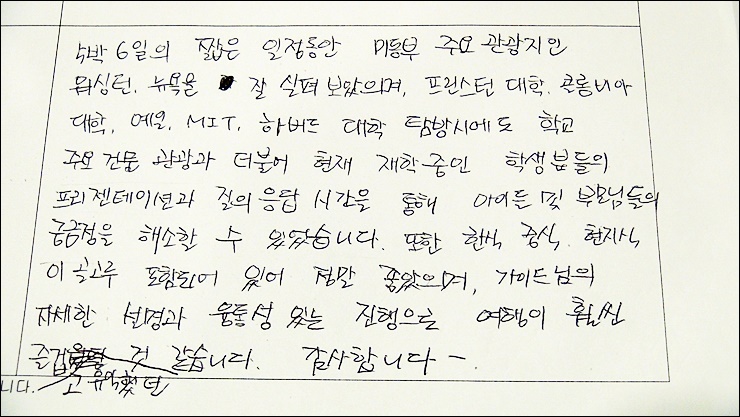 5박 6일의 짧은 일정동안 미동부 주요 관광지인
워싱턴, 뉴욕을 잘 살펴 보았으며, 프린스턴 대학, 콜롬비아
대학, 예일, MIT, 하버드 대학 탐방시에도 학교
주요 건물 관광과 더불어 현재 재학중인 학생분들의
프리젠테이션과 질의 응답 시간을 통해 아이들 및 부모님들의
궁금점을 해소할 수 있었습니다. 또한 한식, 중식, 현지식
이 골고루 포함되어 있어 정말 좋았으며, 가이드님의
자세한 설명과 융통성 있는 진행으로 여행이 훨씬
즐겁 것 같습니다. 감사합니다 ~
니다. 고 유익했던